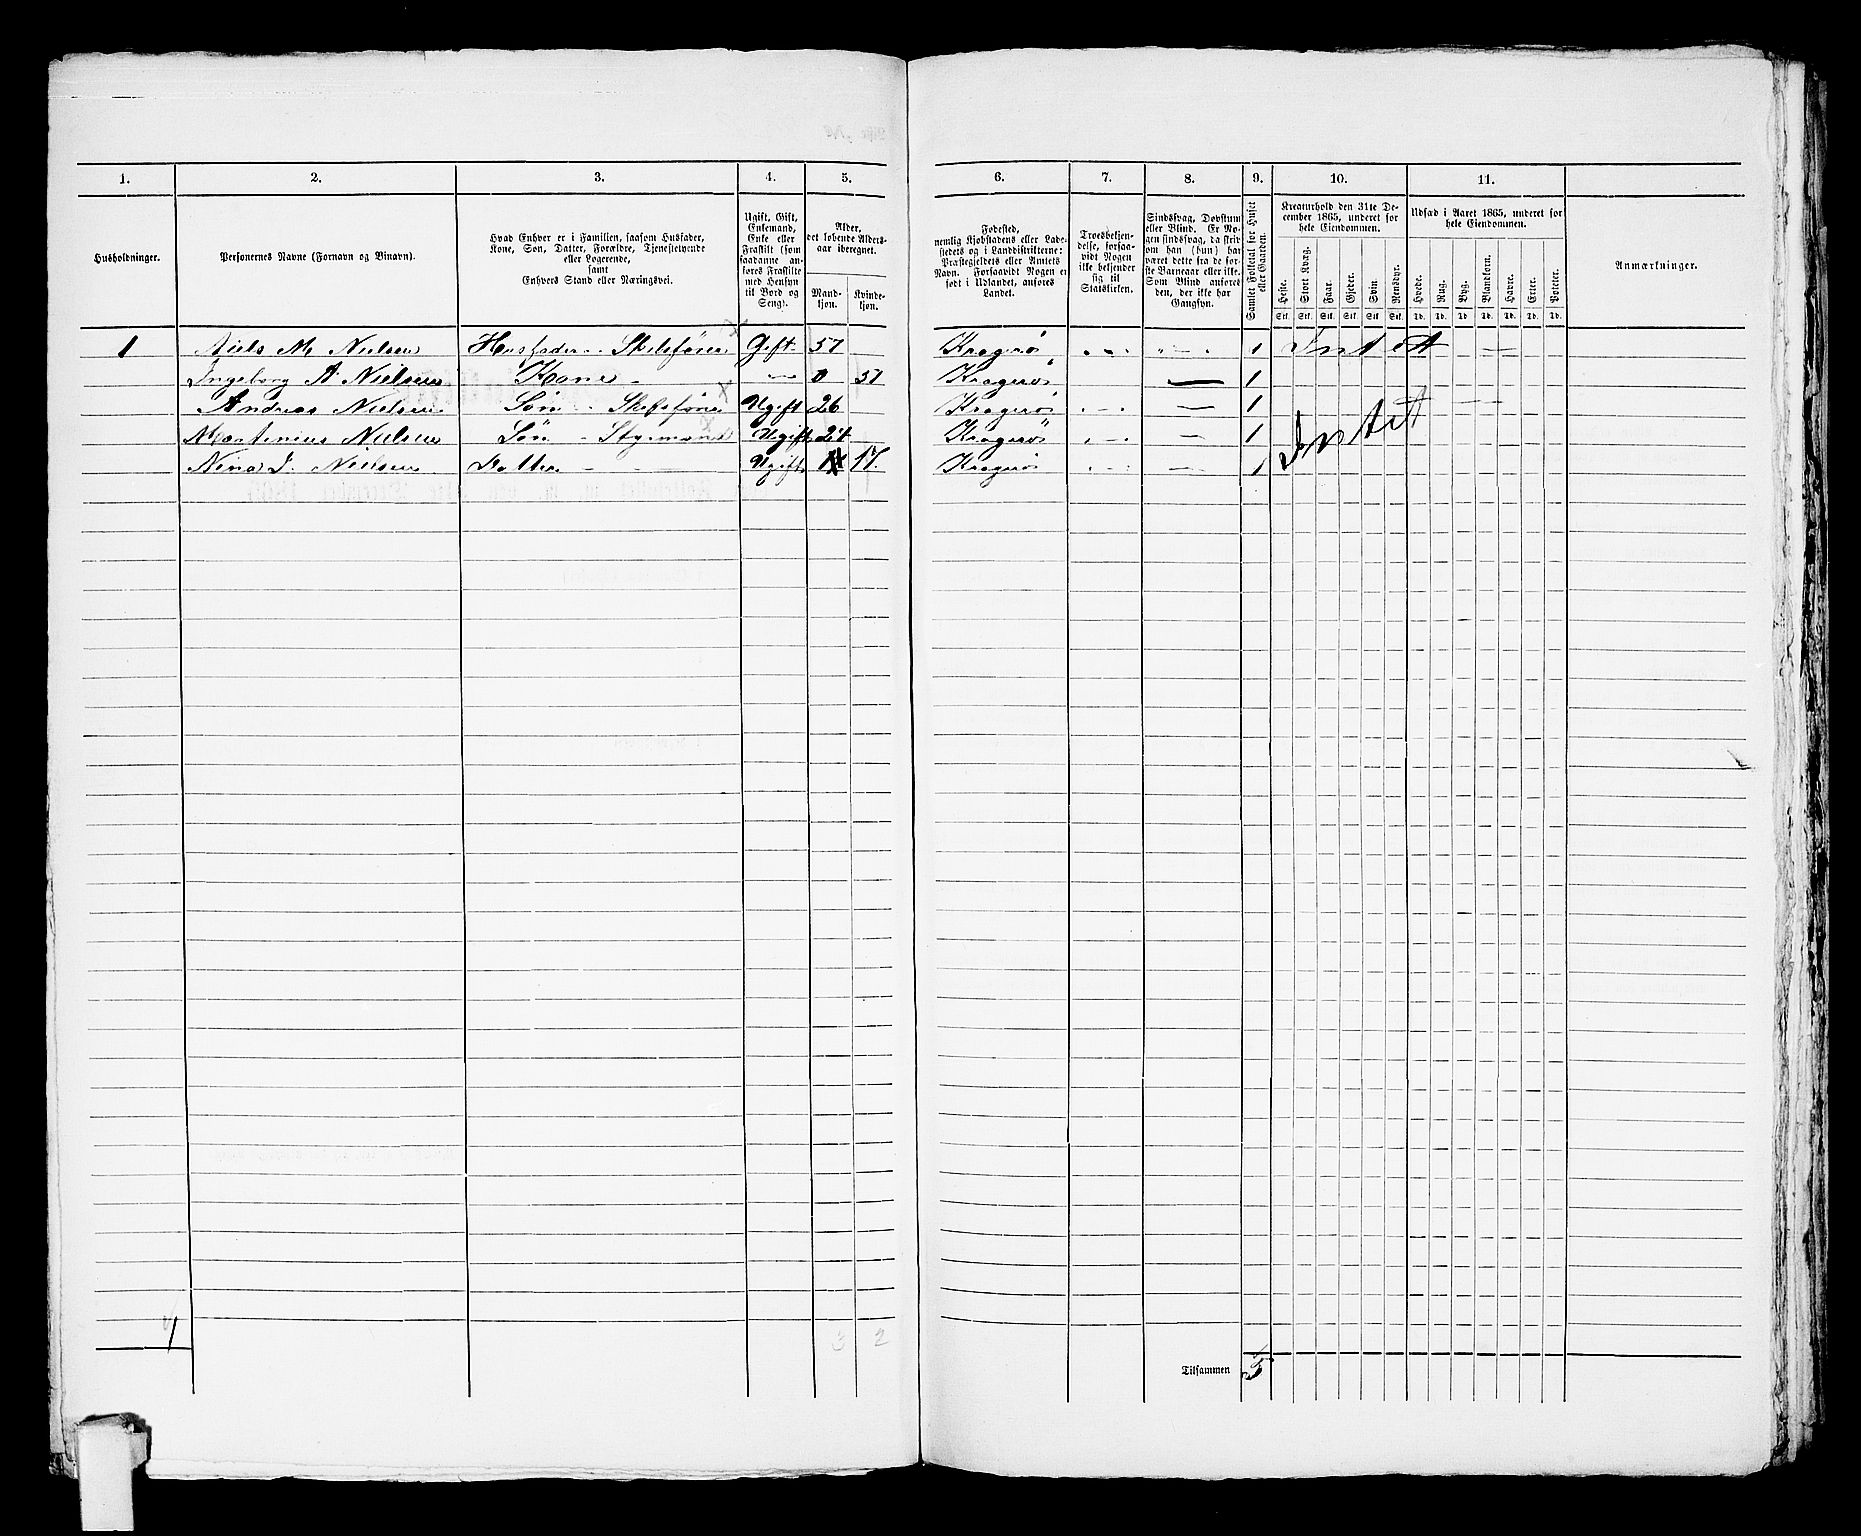 1. 2. 3. 4. 5. 6. 7. 8. 9. 10. 11.
Husholdninger.
Personernes Navne (Fornavn og Binavn).
Hvad Enhver er i Familien, saasom Husfader,
Kone, Søn, Datter, Forældre, Tjenestetyende
eller Logerende,
samt
Enhvers Stand eller Næringsvei.
Ugift, Gift,
Enkemand,
Enke eller
Fraskilt (som
saadanne an-
føres Fraskilte
med Hensyn
til Bord og
Seng).
Alder,
det løbende Alders-
aar iberegnet.
Mand-
kjøn.
Kvinde-
kjøn.
Fødested,
nemlig Kjøbstadens eller Lade-
stedets og i Landdistrikterne:
Præstegjeldets eller Amtets
Navn. Forsaavidt Nogen er
født i Udlandet, anføres
Landet.
Troesbekjen-
delse, forsaa-
vidt Nogen
ikke bekjender
sig til
Statskirken.
Sindssvag, Døvstum
eller Blind. Er No-
gen sindssvag, da skriv
om han (hun) har
været dette fra de før-
ste Barneaar eller ikke.
Som Blind anføres
den, der ikke har
Gangsyn.
Samlet Folketal for Huset
eller Gaarden.
Kreaturhold den 31te De-
cember 1865, underet for
hele Eiendommen.
Heste. Stort Kvæg. Faar. Gjeder. Svin. Rensdyr.
Stk. Stk. Stk. Stk. Stk. Stk.
Udsæd i Aaret 1865, underet for
hele Eiendommen.
Hvede. Rug. Byg. Blandkorn. Havre. Erter. Poteter.
Td. Td. Td. Td. Td. Td. Td.
Anmærkninger.
1 Niels M Nielsen Husfader - Skibsfører Gift 57 Kragerö 1 Intet
Ingeborg A Nielsen Kone - — 0 51 Kragerö — 1
Andreas Nielsen Sön - Skibsfører Ugift 26 Kragerö 1 Intet
Martenius Nielsen Sön - Styrmand Ugift 24 Kragerö 1
Nina J. Nielsen Datter Ugift 17. Kragerö 1
1 3 2
Tilsammen 5